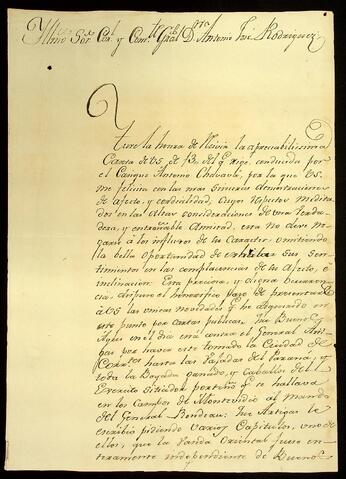 Illmo Sor Czl. y Comte Gral Dn Antonio José Rodriguez
Tuve la honra de recivir la apreciabilissima
Carta de VS de 13 del q rige, conducida por
el Cazique Antonio , por la que VS
me felicita con las mas sinceras demostraciones
de afecto, y cordialidad, cuyos respectos medita
dos en las altas consideraciones de una verda
dera, y entrañable Amistad, esta no deve ne
garse á los influxos de su Caracter, omitiendo
la bella oportunidad de exhibir sus Sen
timientos en las complacencias de su Afecto, é
inclinacion. Esta preciosa, y digna ocurren
cia, dispuso el honorifico pazo de presentarle
á VS las unicas novedades q he adquirido en
este punto por cartas publicas. Que Buenos
Ayes en el dia está contra el General Arti
gas por haver este tomado la Ciudad de
Corrtes hasta las Vajadas del Paraná, y
toda la Boyada ganado, y caballos del
Exercito sitiador porteño q se hallava
en los campos de Montevidio al mando
del General Rondeau: Que Artigas le
escribio pidiendo varios Capitulos, uno de
ellos, que la Vanda Oriental fuese en
teramente independiente de Buenos